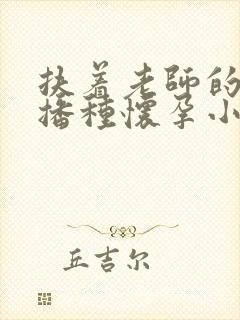 扶着老师的
播种懷孕小
丘吉尔